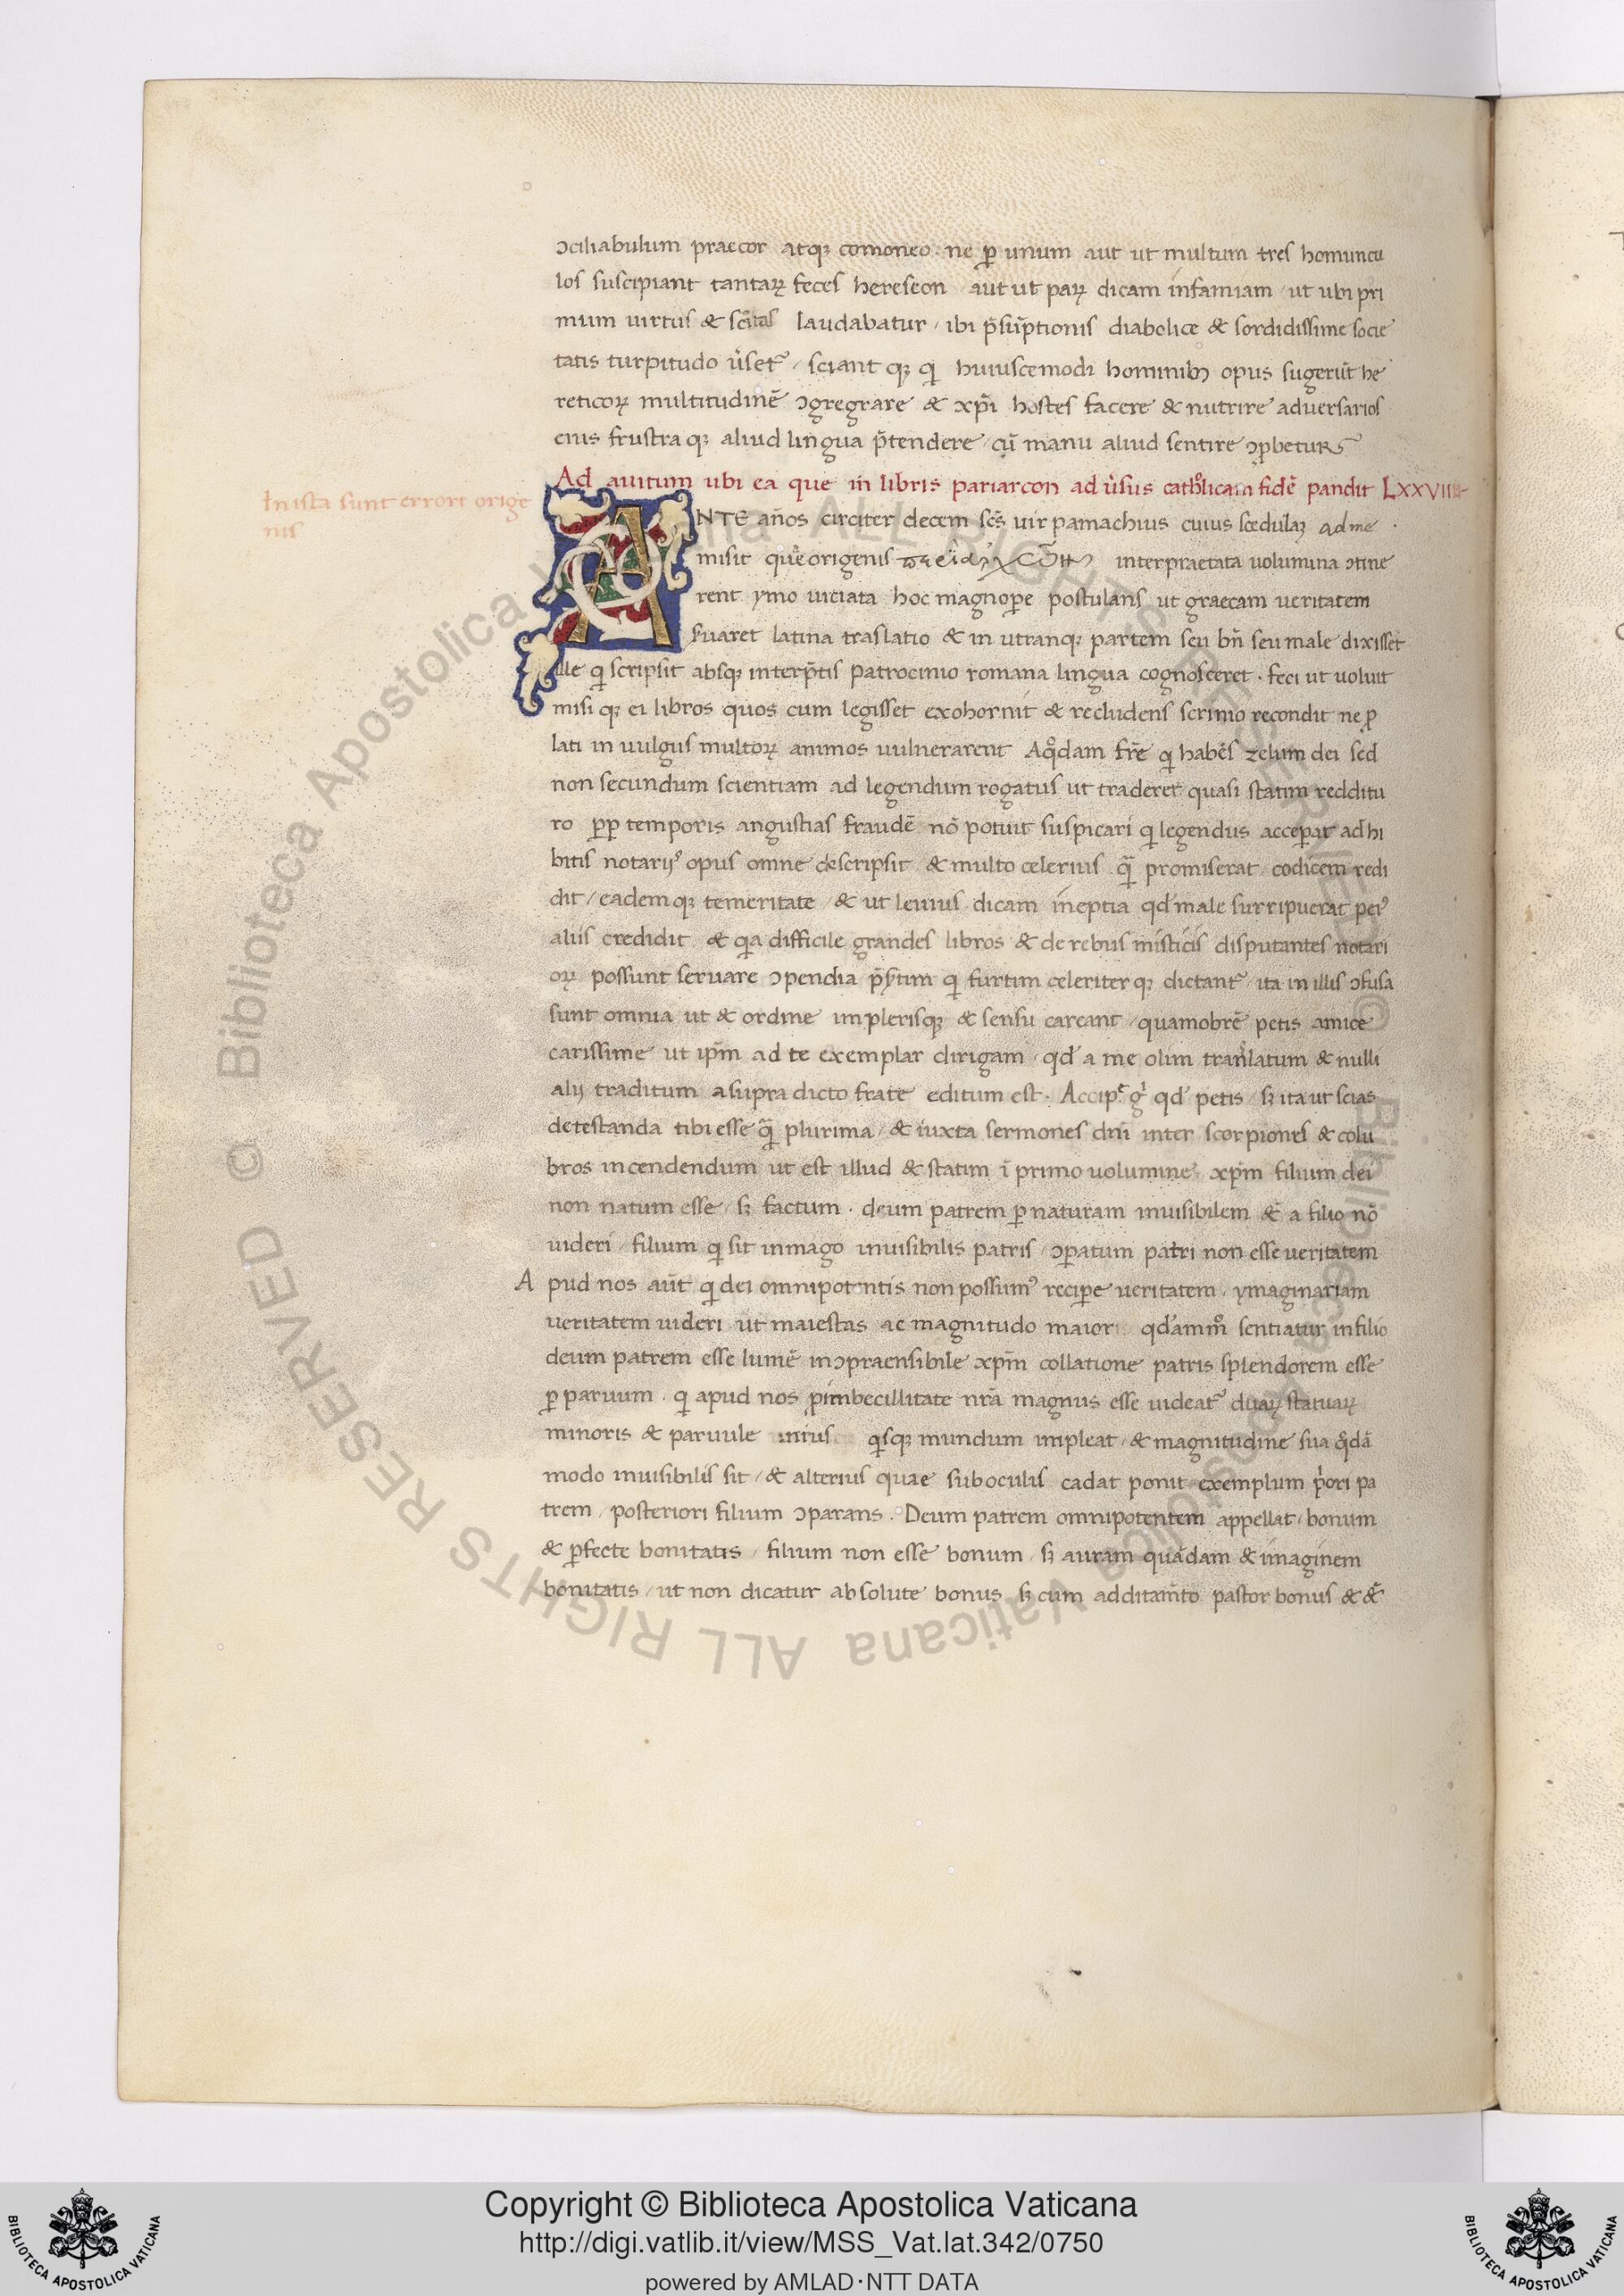 ↄciliabulum praecor atqꝫ comoneo ne ꝑ unum aut ut multum tres homuncu
los suscipiant tantaꝝ feces hereseon aut ut paꝝ dicam infamiam / ut ubi pri
mum uirtus & sc̄itas laudabatur / ibi p̄sūptionis diabolice & sordidissime socie
tatis turpitudo ùset᷑ / sciant qꝫ qi huiuscemodi hominibꝫ opus sugerūt he
reticoꝝ multitudinē ↄgregrare & xp̄i hostes facere & nutrire aduersarios
enis frustra qꝫ aliud lingua p̄tendere / cū manu aliud sentire ↄꝓbetur
Ad auitum ubi ea que in libris pariarcon ad ùsus catholicam fidē pandit LXXVIIII
In ista sunt errori orige
nis
ANTE an̄os circiter decem sc̄s uir pamachius cuius scedulaꝫ ad me
misit que origenis interpraetata uolumina ↄtine
rent ymo uitiata hoc magnoꝑe postulans ut graecam ueritatem
ẜuaret latina traslatio & in utranqꝫ partem seu bn̄ seu male dixisset
ille qi scripsit absqꝫ interp̄tis patrocinio romana lingua cognosceret . feci ut uoluit
misi qꝫ ei libros quos cum legisset exohorruit & recludens scrinio recondit ne ꝓ
lati in uulgus multoꝝ animos uulnerarent Aqͦdam fr̄e qi habēs zelum dei sed
non secundum scientiam ad legendum rogatus ut traderet quasi statim redditu
ro ꝓp temporis angustias fraudē nō potuit suspicari qi legendus acceꝑat adhi
bitis notarijs opus omne descripsit / & multo celerius qā promiserat / codicem redi
dit / eadem qꝫ temeritate / & ut leuius dicam ineptia qd male surripuerat pei᷒
aliis credidit & qa difficile grandes libros & de rebus misticis disputantes notari
oꝝ possunt seruare ↄpendia p̄ẜtim qi furtim celeriter qꝫ dictant᷑ / ita in illis ↄfusa
sunt omnia ut & ordine in plerisqꝫ & sensu careant / quamobrē petis amice
carissime ut ip̄m ad te exemplar dirigam / qd a me olim translatum & nulli
alij traditum a supra dicto frate editum est . Accipe gͥ qd petis / sꝫ ita ut scias
detestanda tibi esse qā plurima / & iuxta sermones dn̄i inter scorpiones & colu
bros incendendum ut est illud & statim ī primo uolumine xp̄m filium dei
non natum esse / sꝫ factum . deum patrem ꝑ naturam inuisibilem & a filio nō
uideri / filium qi sit inmago inuisibilis patris / ↄꝑatum patri non esse ueritatem
Apud nos aūt qi dei omnipotentis non possum᷒ reciꝑe ueritatem / ymaginariam
ueritatem uideri ut maiestas ac magnitudo maior qdammͦ sentiatur in filio
deum patrem esse lumē inↄpraensibile xp̄m collatione patris splendorem esse
ꝑ paruum . qi apud nos ꝓ imbecillitate nr̄a magnus esse uideat᷑ duaꝝ statuaꝝ
minoris & paruule unius qisqꝫ mundum impleat / & magnitudine sua qdā
modo inuisibilis sit / & alterius quae sub oculis cadat ponit exemplum pͥori pa
trem / posteriori filium ↄparans . Deum patrem omnipotentem appellat / bonum
& ꝑfecte bonitatis / filium non esse bonum / sꝫ auram quādam & imaginem
bonitatis / ut non dicatur absolute bonus sꝫ cum additam̄to pastor bonus & &
© Biblioteca Apostolica Vaticana ALL RIGHTS RESERVED
Copyright © Biblioteca Apostolica Vaticana
http://digi.vatlib.it/view/MSS_Vat.lat.342/0750
powered by AMLAD·NTT DATA
BIBLIOTECA APOSTOLICA VATICANA
BIBLIOTECA APOSTOLICA VATICANA